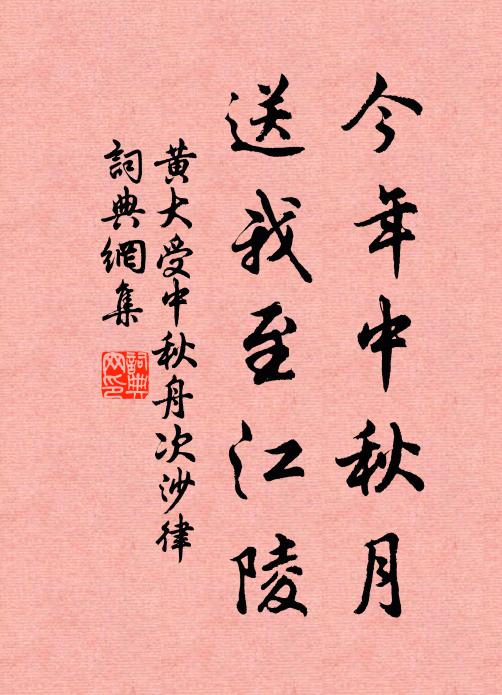 今年中秋月
送我至江陵
黄大受中秋舟次沙律
詞典網集
詞典網印